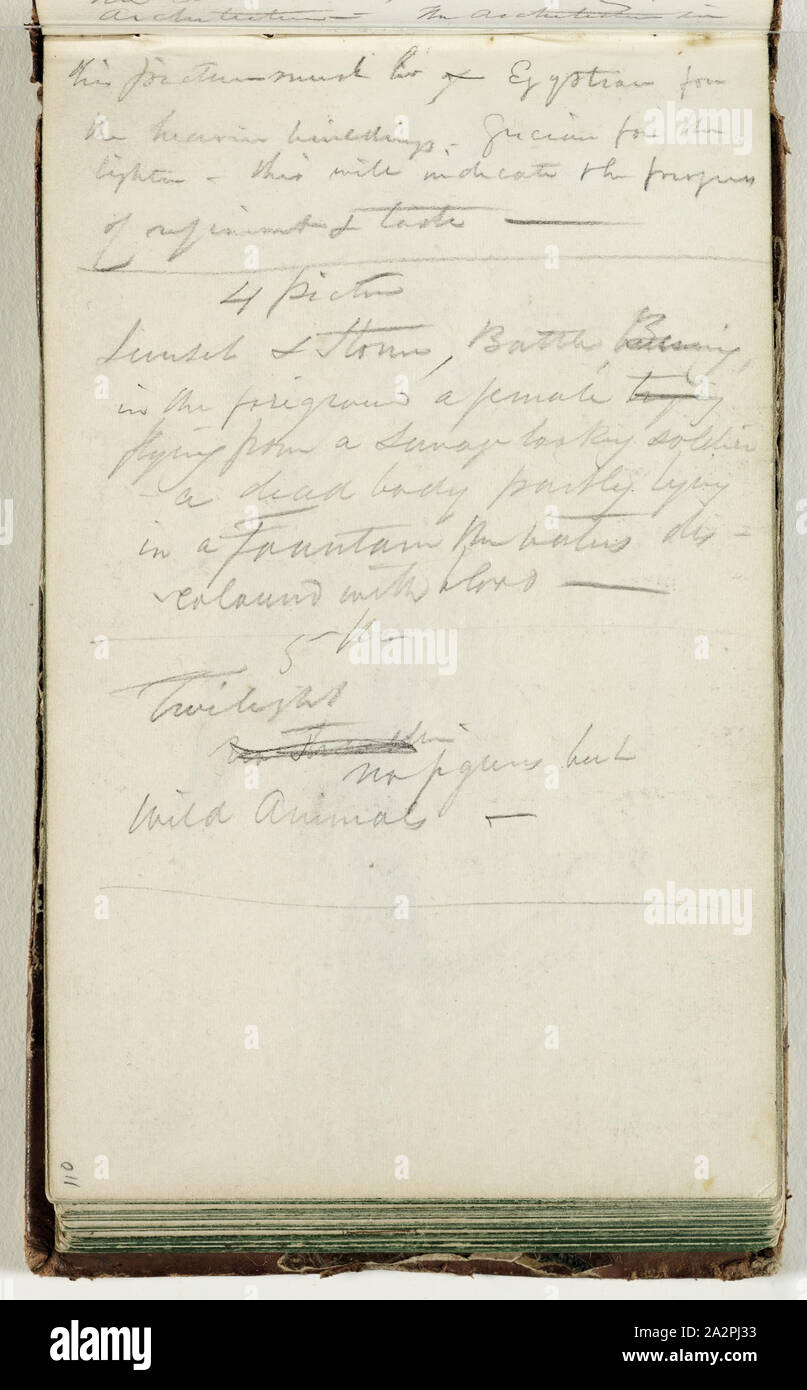 architecture – The architecture in
this picture must be of Egyptian for
the heavier buildings – Grecian for the
lighter – this will indicate the progress
of refinement & taste —
4 picture
Sunset & Storm, Battle, Burning,
in the foreground a female trying
flying from a Savage looking soldier
– a dead body partly lying
in a Fountain the waters dis-
coloured with blood —
5th
Twilight
no figures but
Wild Animals –
110
a
alamy
alamy
Image ID: 2A2PJ33
www.alamy.com